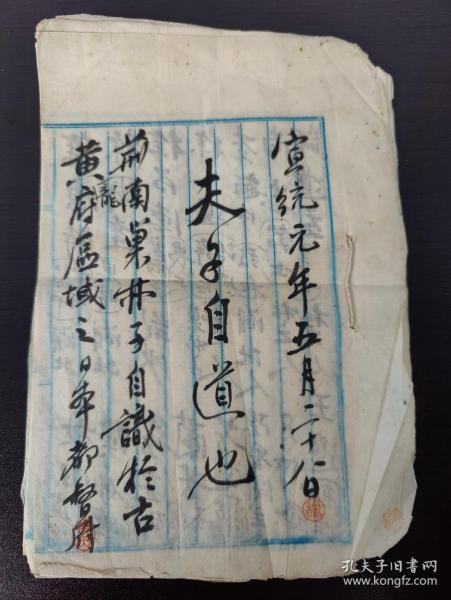 宣統元年五月二十八日
夫子自道也
荊南巢林子自識於古
黃龍府區域之日本都督府
孔夫子旧书网
www.kongfz.com